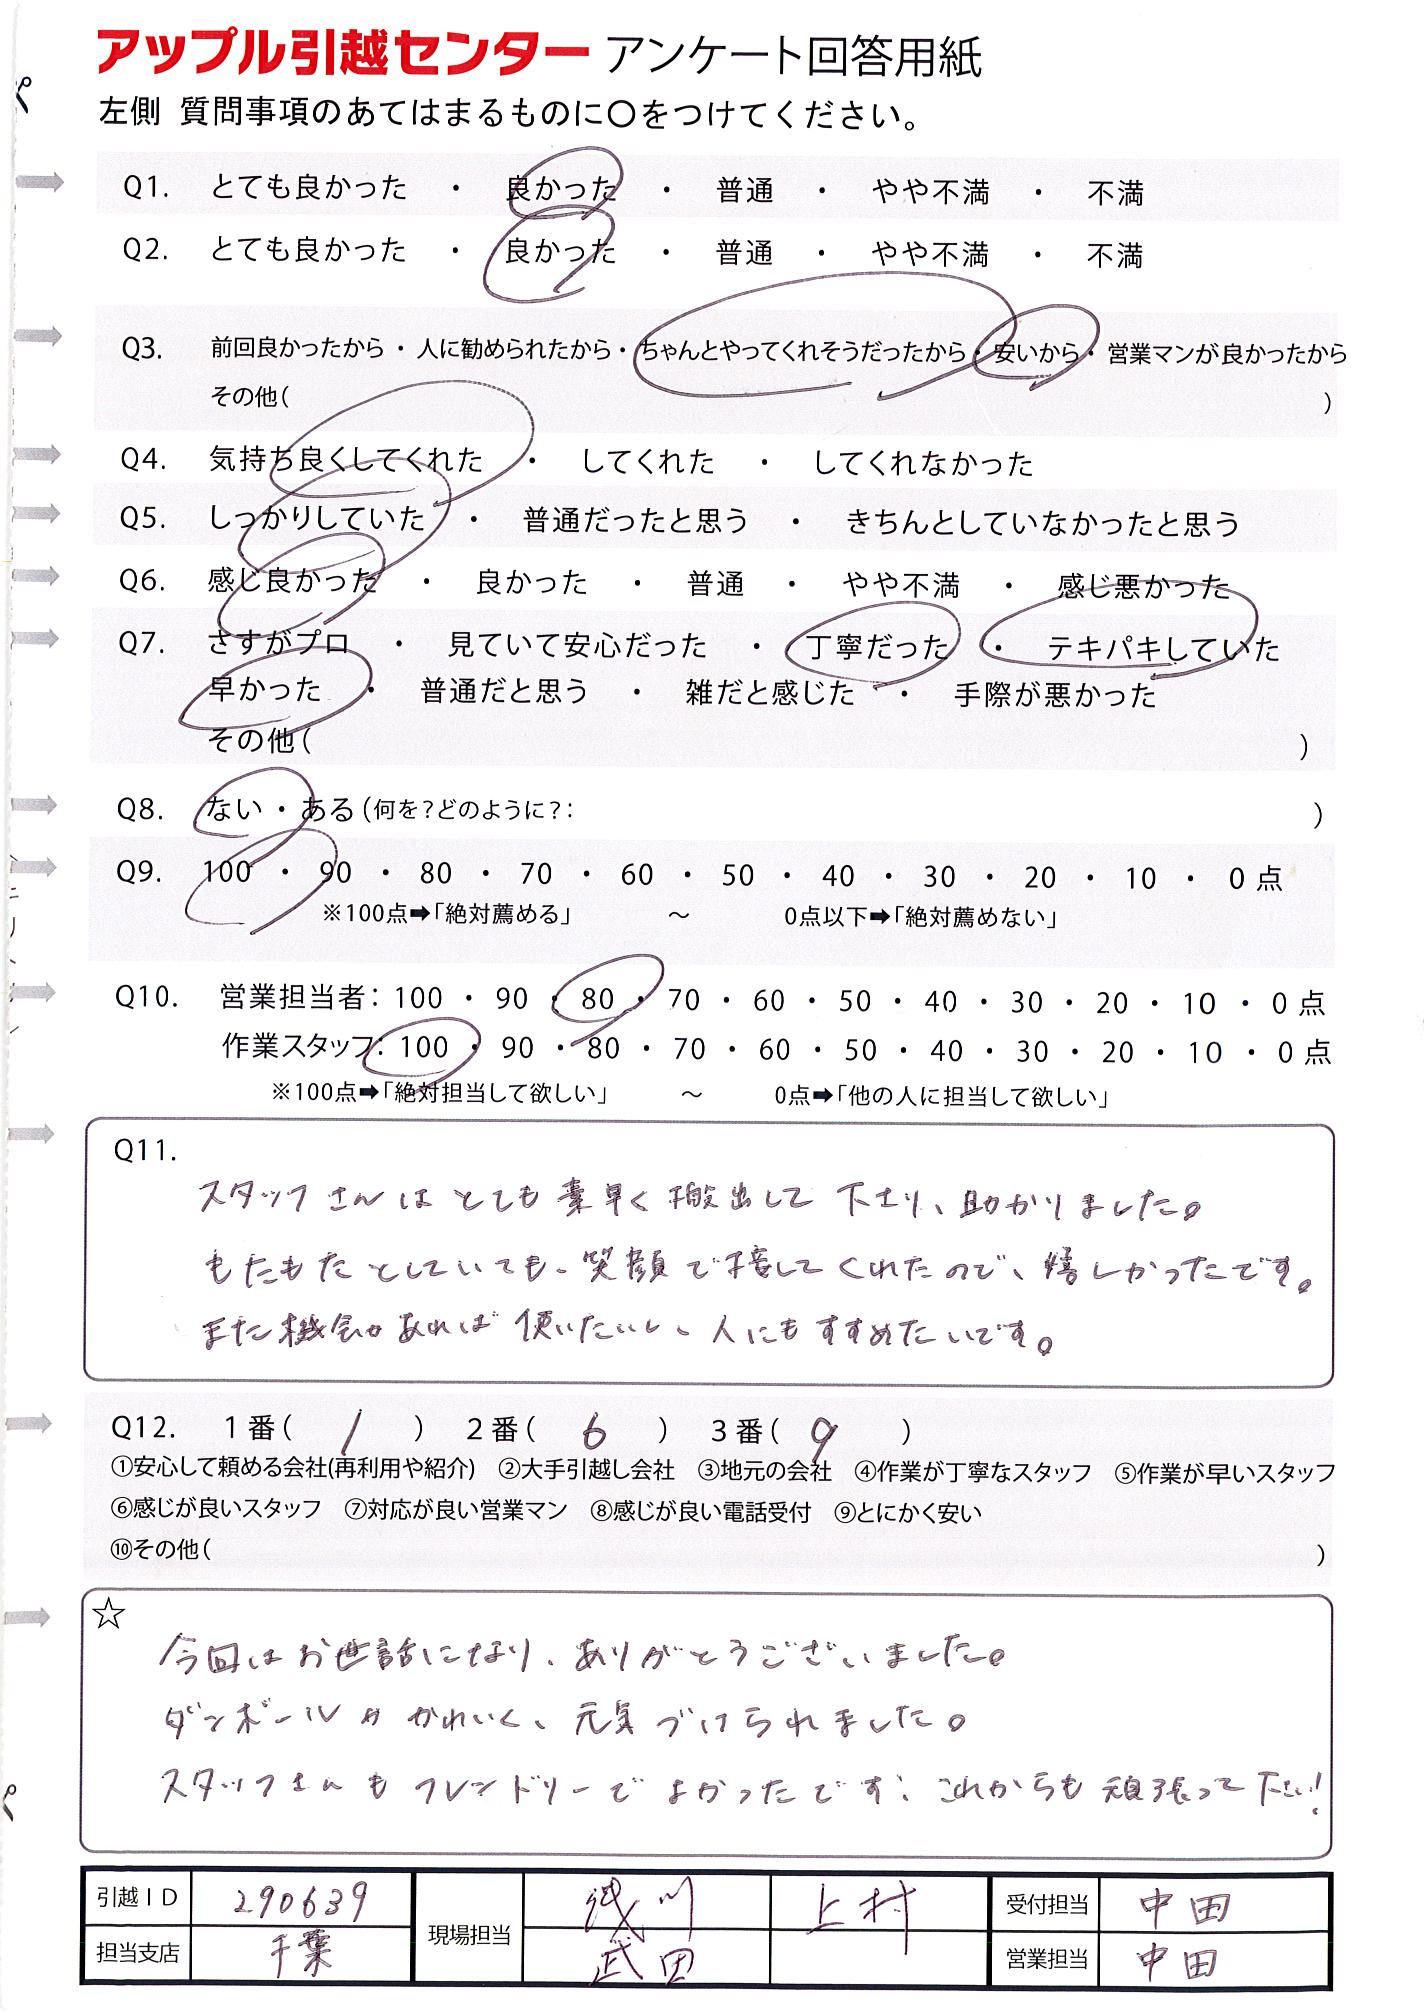 アップル引越センター アンケート回答用紙
左側 質問事項のあてはまるものに○をつけてください。
Q1. とても良かった ・ 良かった ・ 普通 ・ やや不満 ・ 不満
Q2. とても良かった ・ 良かった ・ 普通 ・ やや不満 ・ 不満
Q3. 前回良かったから・人に勧められたから・ちゃんとやってくれそうだったから・安いから・営業マンが良かったから
その他( )
Q4. 気持ち良くしてくれた ・ してくれた ・ してくれなかった
Q5. しっかりしていた ・ 普通だったと思う ・ きちんとしていなかったと思う
Q6. 感じ良かった ・ 良かった ・ 普通 ・ やや不満 ・ 感じ悪かった
Q7. さすがプロ ・ 見ていて安心だった ・ 丁寧だった ・ テキパキしていた
早かった ・ 普通だと思う ・ 雑だと感じた ・ 手際が悪かった
その他( )
Q8. ない・ある(何を?どのように?: )
Q9. 100 ・ 90 ・ 80 ・ 70 ・ 60 ・ 50 ・ 40 ・ 30 ・ 20 ・ 10 ・ 0点
※100点➡「絶対薦める」 ～ 0点以下➡「絶対薦めない」
Q10. 営業担当者:100 ・ 90 ・ 80 ・ 70 ・ 60 ・ 50 ・ 40 ・ 30 ・ 20 ・ 10 ・ 0点
作業スタッフ:100 ・ 90 ・ 80 ・ 70 ・ 60 ・ 50 ・ 40 ・ 30 ・ 20 ・ 10 ・ 0点
※100点➡「絶対担当して欲しい」 ～ 0点➡「他の人に担当して欲しい」
Q11.
スタッフさんはとても素早く搬出して下さり、助かりました。
もたもたとしていても、笑顔で接してくれたので、嬉しかったです。
また機会があれば使いたいし、人にもすすめたいです。
Q12. 1番( 1 ) 2番( 6 ) 3番( 9 )
①安心して頼める会社(再利用や紹介) ②大手引越し会社 ③地元の会社 ④作業が丁寧なスタッフ ⑤作業が早いスタッフ
⑥感じが良いスタッフ ⑦対応が良い営業マン ⑧感じが良い電話受付 ⑨とにかく安い
⑩その他( )
☆
今回はお世話になり、ありがとうございました。
ダンボールがかわいく、元気づけられました。
スタッフさんもフレンドリーでよかったです、これからも頑張って下さい!
引越ID 290639 現場担当 浅川 上村 受付担当 中田
担当支店 千葉 武田 営業担当 中田